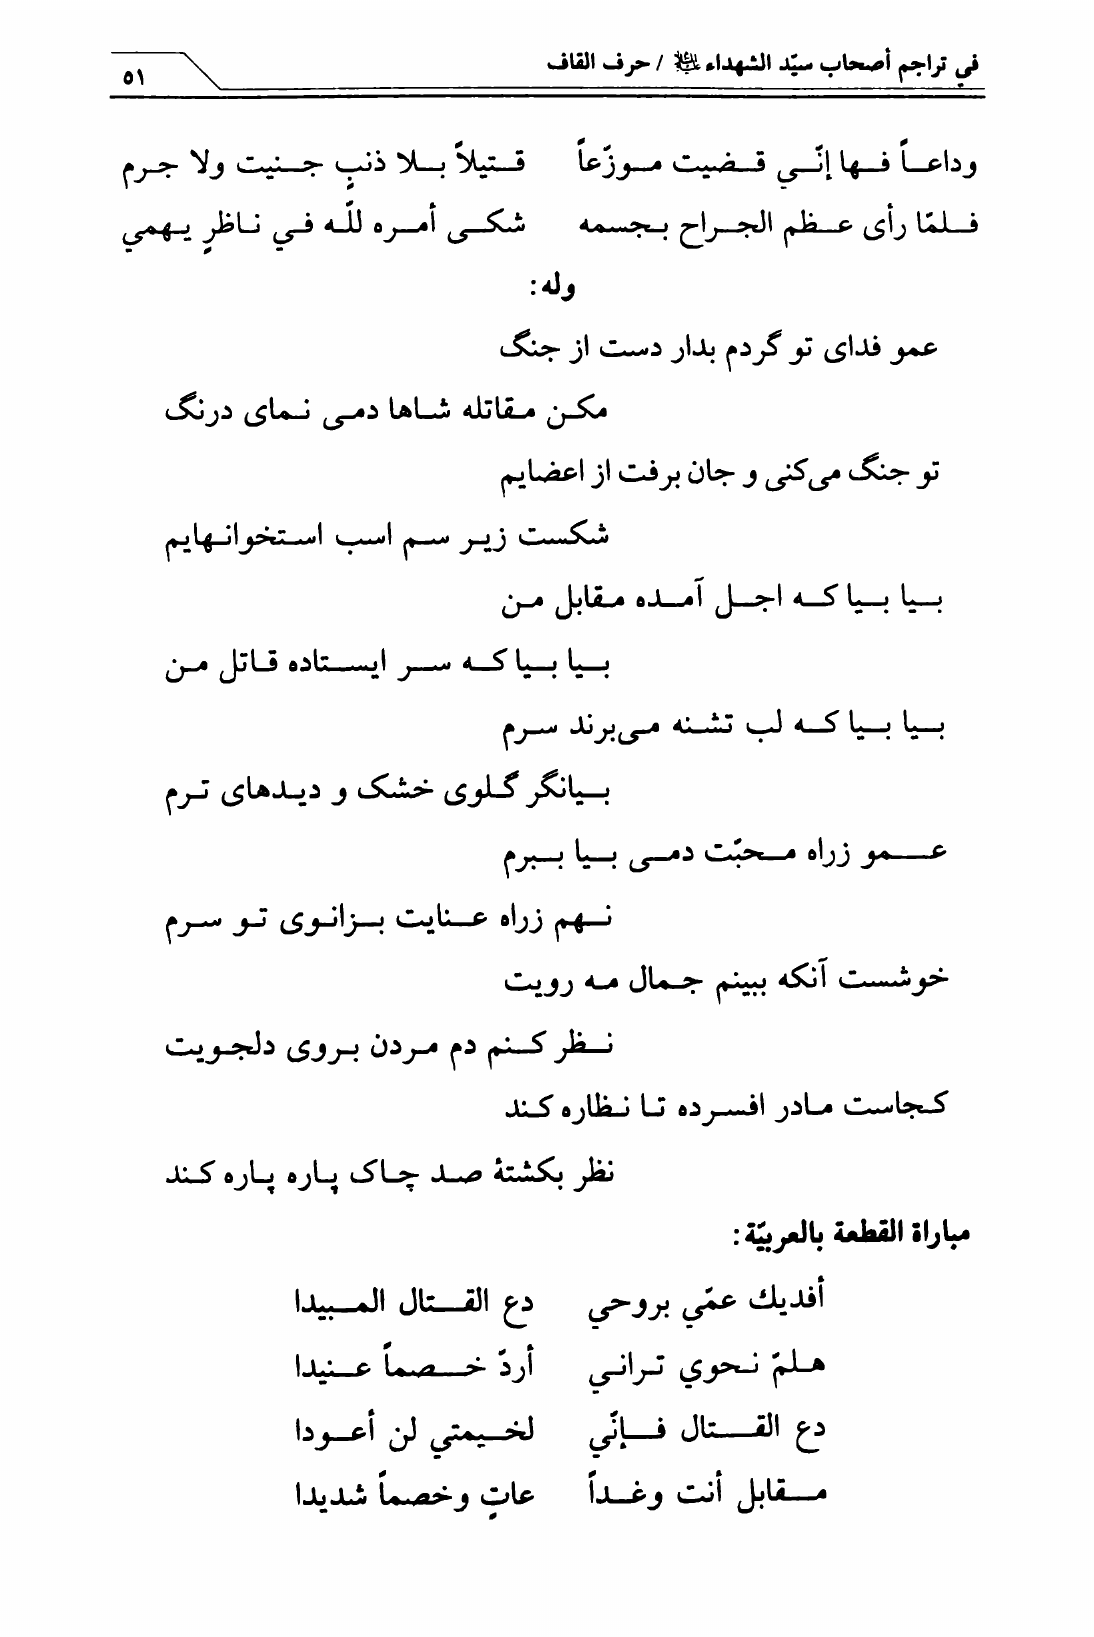 في تراجم أصحاب سيّد الشهداء ﷺ / حرف القاف ٥١
وداعاً فها إنّي قضيت موزّعاً قتيلاً بلا ذنبٍ جنيت ولا جرم
فلمّا رأى عظم الجراح بجسمه شكى أمره للّه في ناظرٍ يهمي
وله:
عمو فدای تو گردم بدار دست از جنگ
مکن مقاتله شاها دمی نمای درنگ
تو جنگ می‌کنی و جان برفت از اعضایم
شکست زیر سم اسب استخوانهایم
بیا بیا که اجل آمده مقابل من
بیا بیا که سر ایستاده قاتل من
بیا بیا که لب تشنه می‌برند سرم
بیانگر گلوی خشک و دیدهای ترم
عمو زراه محبّت دمی بیا ببرم
نهم زراه عنایت بزانوی تو سرم
خوشست آنکه ببینم جمال مه رویت
نظر کنم دم مردن بروی دلجویت
کجاست مادر افسرده تا نظاره کند
نظر بکشتۀ صد چاک پاره پاره کند
مباراة القطعة بالعربيّة:
أفديك عمّي بروحي دع القتال المبيدا
هلمّ نحوي تراني أردّ خصماً عنيدا
دع القتال فإنّي لخيمتي لن أعودا
مقابل أنت وغداً عاتٍ وخصماً شديدا